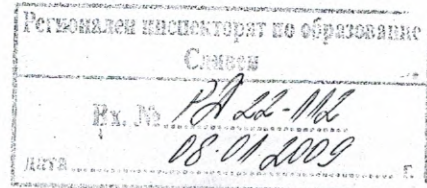 Регионален инспекторат по образование
Сливен
Вх. № РД 22-112
дата 08.01.2009 г.